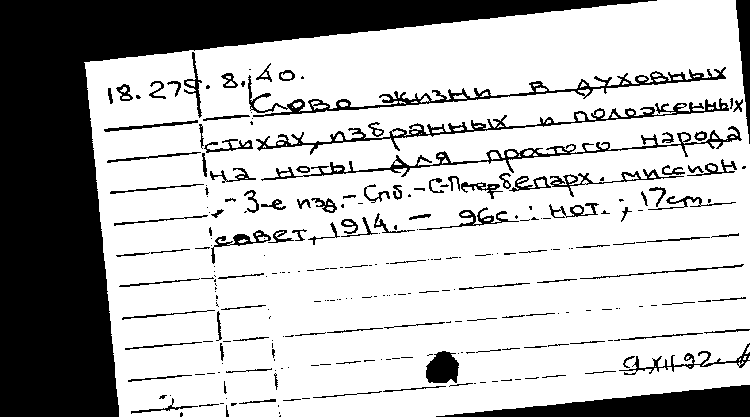 18.275.8.40.
Слово жизни в духовных
стихах, избранных и положенных
на ноты для простого народа
.- 3-е изд.- Спб.- С-Петерб. епарх. миссион.
совет, 1914. - 96с. : нот. ; 17см.
9.XII.92.
2.